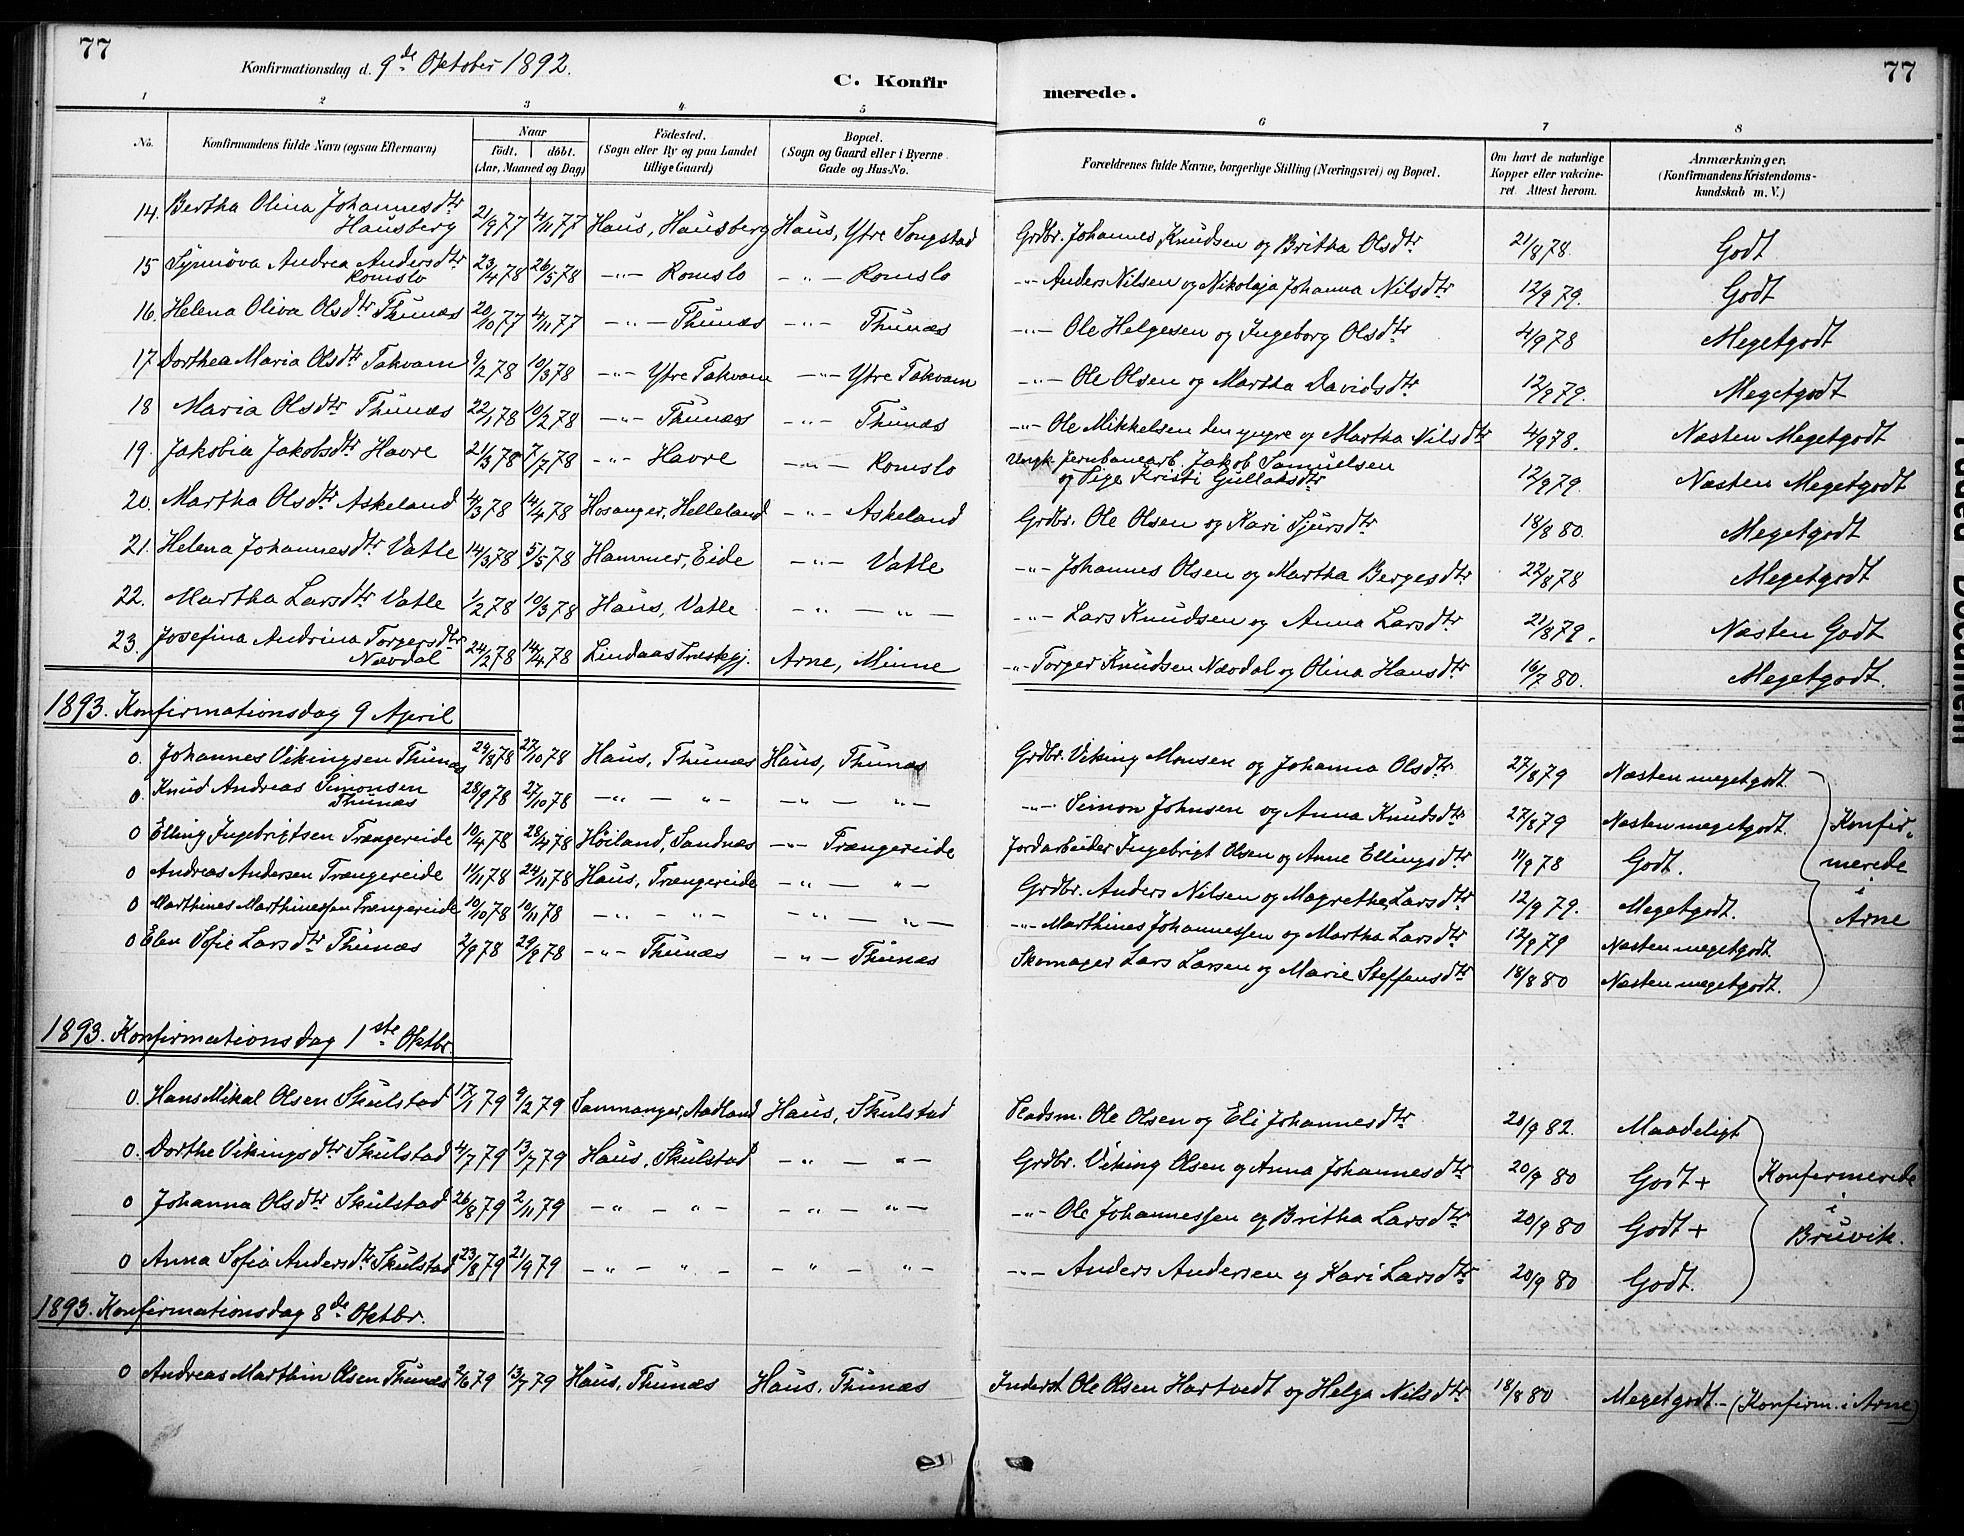 77
Konfirmationsdag d. 9de Oktober 1892.
C. Konfir
merede.
77
1 2 3 4 5 6 7 8
No.
Konfirmandens fulde Navn (ogsaa Efternavn)
Naar
födt. döbt.
(Aar, Maaned og Dag)
Födested.
(Sogn eller By og paa Landet tillige Gaard)
Bopæl.
(Sogn og Gaard eller i Byerne Gade og Hus-No.
Forældrenes fulde Navne, borgerlige Stilling (Næringsvei) og Bopæl.
Om havt de naturlige Kopper eller vakcineret. Attest herom.
Anmærkninger.
(Konfirmandens Kristendomskundskab m. V.)
14. Bertha Olina Johannesdtr Hausberg 21/9 77 4/11 77 Haus, Hausberg Haus, Ytre Songstad Grdbr. Johannes Knudsen og Britha Olsdtr 21/8 78. Godt
15 Synnöva Andrea Andersdtr Romslo 23/4 78 26/5 78 -"- Romslo -"- Romslo -"- Anders Nilsen og Nikolaja Johanna Nilsdtr 12/9 79. Godt
16. Helena Oliva Olsdtr Thunæs 20/10 77 4/11 77 -"- Thunæs -"- Thunæs -"- Ole Helgesen og Ingeborg Olsdtr 4/9 78 Megetgodt
17 Dorthea Maria Olsdtr Takvam 9/2 78 10/3 78 -"- Ytre Takvam -"- Ytre Takvam -"- Ole Olsen og Martha Davidsdtr 12/9 79. Megetgodt
18 Maria Olsdtr Thunæs 22/1 78 10/2 78 -"- Thunæs -"- Thunæs -"- Ole Mikkelsen den yngre og Martha Nilsdtr 4/9 78. Næsten Megetgodt
19. Jakobia Jakobsdtr Havre 21/3 78 7/7 78 -"- Havre -"- Romslo Ungk. Jernbanearb. Jakob Samuelsen og Pige Kristi Gullaksdtr 12/9 79. Næsten Megetgodt
20. Martha Olsdtr Askeland 4/3 78 14/4 78 Hosanger, Helleland -"- Askeland Grdbr. Ole Olsen og Kari Sjursdtr 18/8 80. Megetgodt
21. Helena Johannesdtr Vatle 14/3 78 5/5 78 Hammer, Eide -"- Vatle -"- Johannes Olsen og Martha Bergesdtr 22/8 78 Megetgodt
22. Martha Larsdtr Vatle 1/2 78 10/3 78 Haus, Vatle -"- -"- -"- Lars Knudsen og Anna Larsdtr 21/8 79. Næsten Godt
23. Josefina Andrina Torgersdtr Nævdal 24/2 78 14/4 78 Lindaas Præstegj. Arne, Minne -"- Torger Knudsen Nævdal og Olina Hansdtr 16/7 80. Megetgodt.
1893. Konfirmationsdag 9 April
0. Johannes Vikingsen Thunæs 24/8 78 27/10 78 Haus, Thunæs Haus, Thunæs Grdbr. Viking Monsen og Johanna Olsdtr 27/8 79 Næsten megetgodt
0. Knud Andreas Simonsen Thunæs 28/9 78 27/10 78 -"- -"- -"- -"- -"- Simon Johnsen og Anna Knudsdtr 27/8 79 Næsten megetgodt.
0 Elling Ingebrigtsen Trængereide 10/4 78 28/4 78 Høiland, Sandnæs -"- Trængereide Jordarbeider Ingebrigt Olsen og Anne Ellingsdtr 11/9 78 Godt.
0 Andreas Andersen Trængereide 11/11 78 24/11 78 Haus, Trængereide -"- -"- Grdbr. Anders Nilsen og Magrethe Larsdtr 12/9 79. Megetgodt.
0 Marthines Marthinessen Trængereide 10/10 78 10/11 78 -"- -"- -"- -"- -"- Marthines Johannessen og Martha Larsdtr 12/9 79 Næsten megetgodt
0 Elen Sofie Larsdtr Thunæs 2/9 78 29/9 78 -"- Thunæs -"- Thunæs Skomager Lars Larsen og Marie Steffensdtr 18/8 80 Næsten megetgodt.
Konfirmerede i Arne
1893. Konfirmationsdag 1ste Oktbr.
0. Hans Mikal Olsen Skulstad 17/1 79 9/2 79 Sammanger, Aadland Haus, Skulstad Pladsm. Ole Olsen og Eli Johannesdtr 20/9 82. Maadeligt
0. Dorthe Vikingsdtr Skulstad 4/7 79 13/7 79 Haus, Skulstad -"- -"- Grdbr. Viking Olsen og Anna Johannesdtr 20/9 80 Godt +
0 Johanna Olsdtr Skulstad 26/8 79 2/11 79 -"- -"- -"- -"- -"- Ole Johannessen og Britha Larsdtr 20/9 80 Godt +
0 Anna Sofia Andersdtr Skulstad 23/8 79 21/9 79 -"- -"- -"- -"- -"- Anders Andersen og Kari Larsdtr 20/9 80 Godt.
Konfirmerede i Bruvik.
1893. Konfirmationsdag 8de Oktbr.
0 Andreas Marthin Olsen Thunæs 2/6 79 13/7 79 Haus, Thunæs Haus, Thunæs Inderst Ole Olsen Hartvedt og Helga Nilsdtr 18/8 80 Megetgodt. - (Konfirm. i Arne)